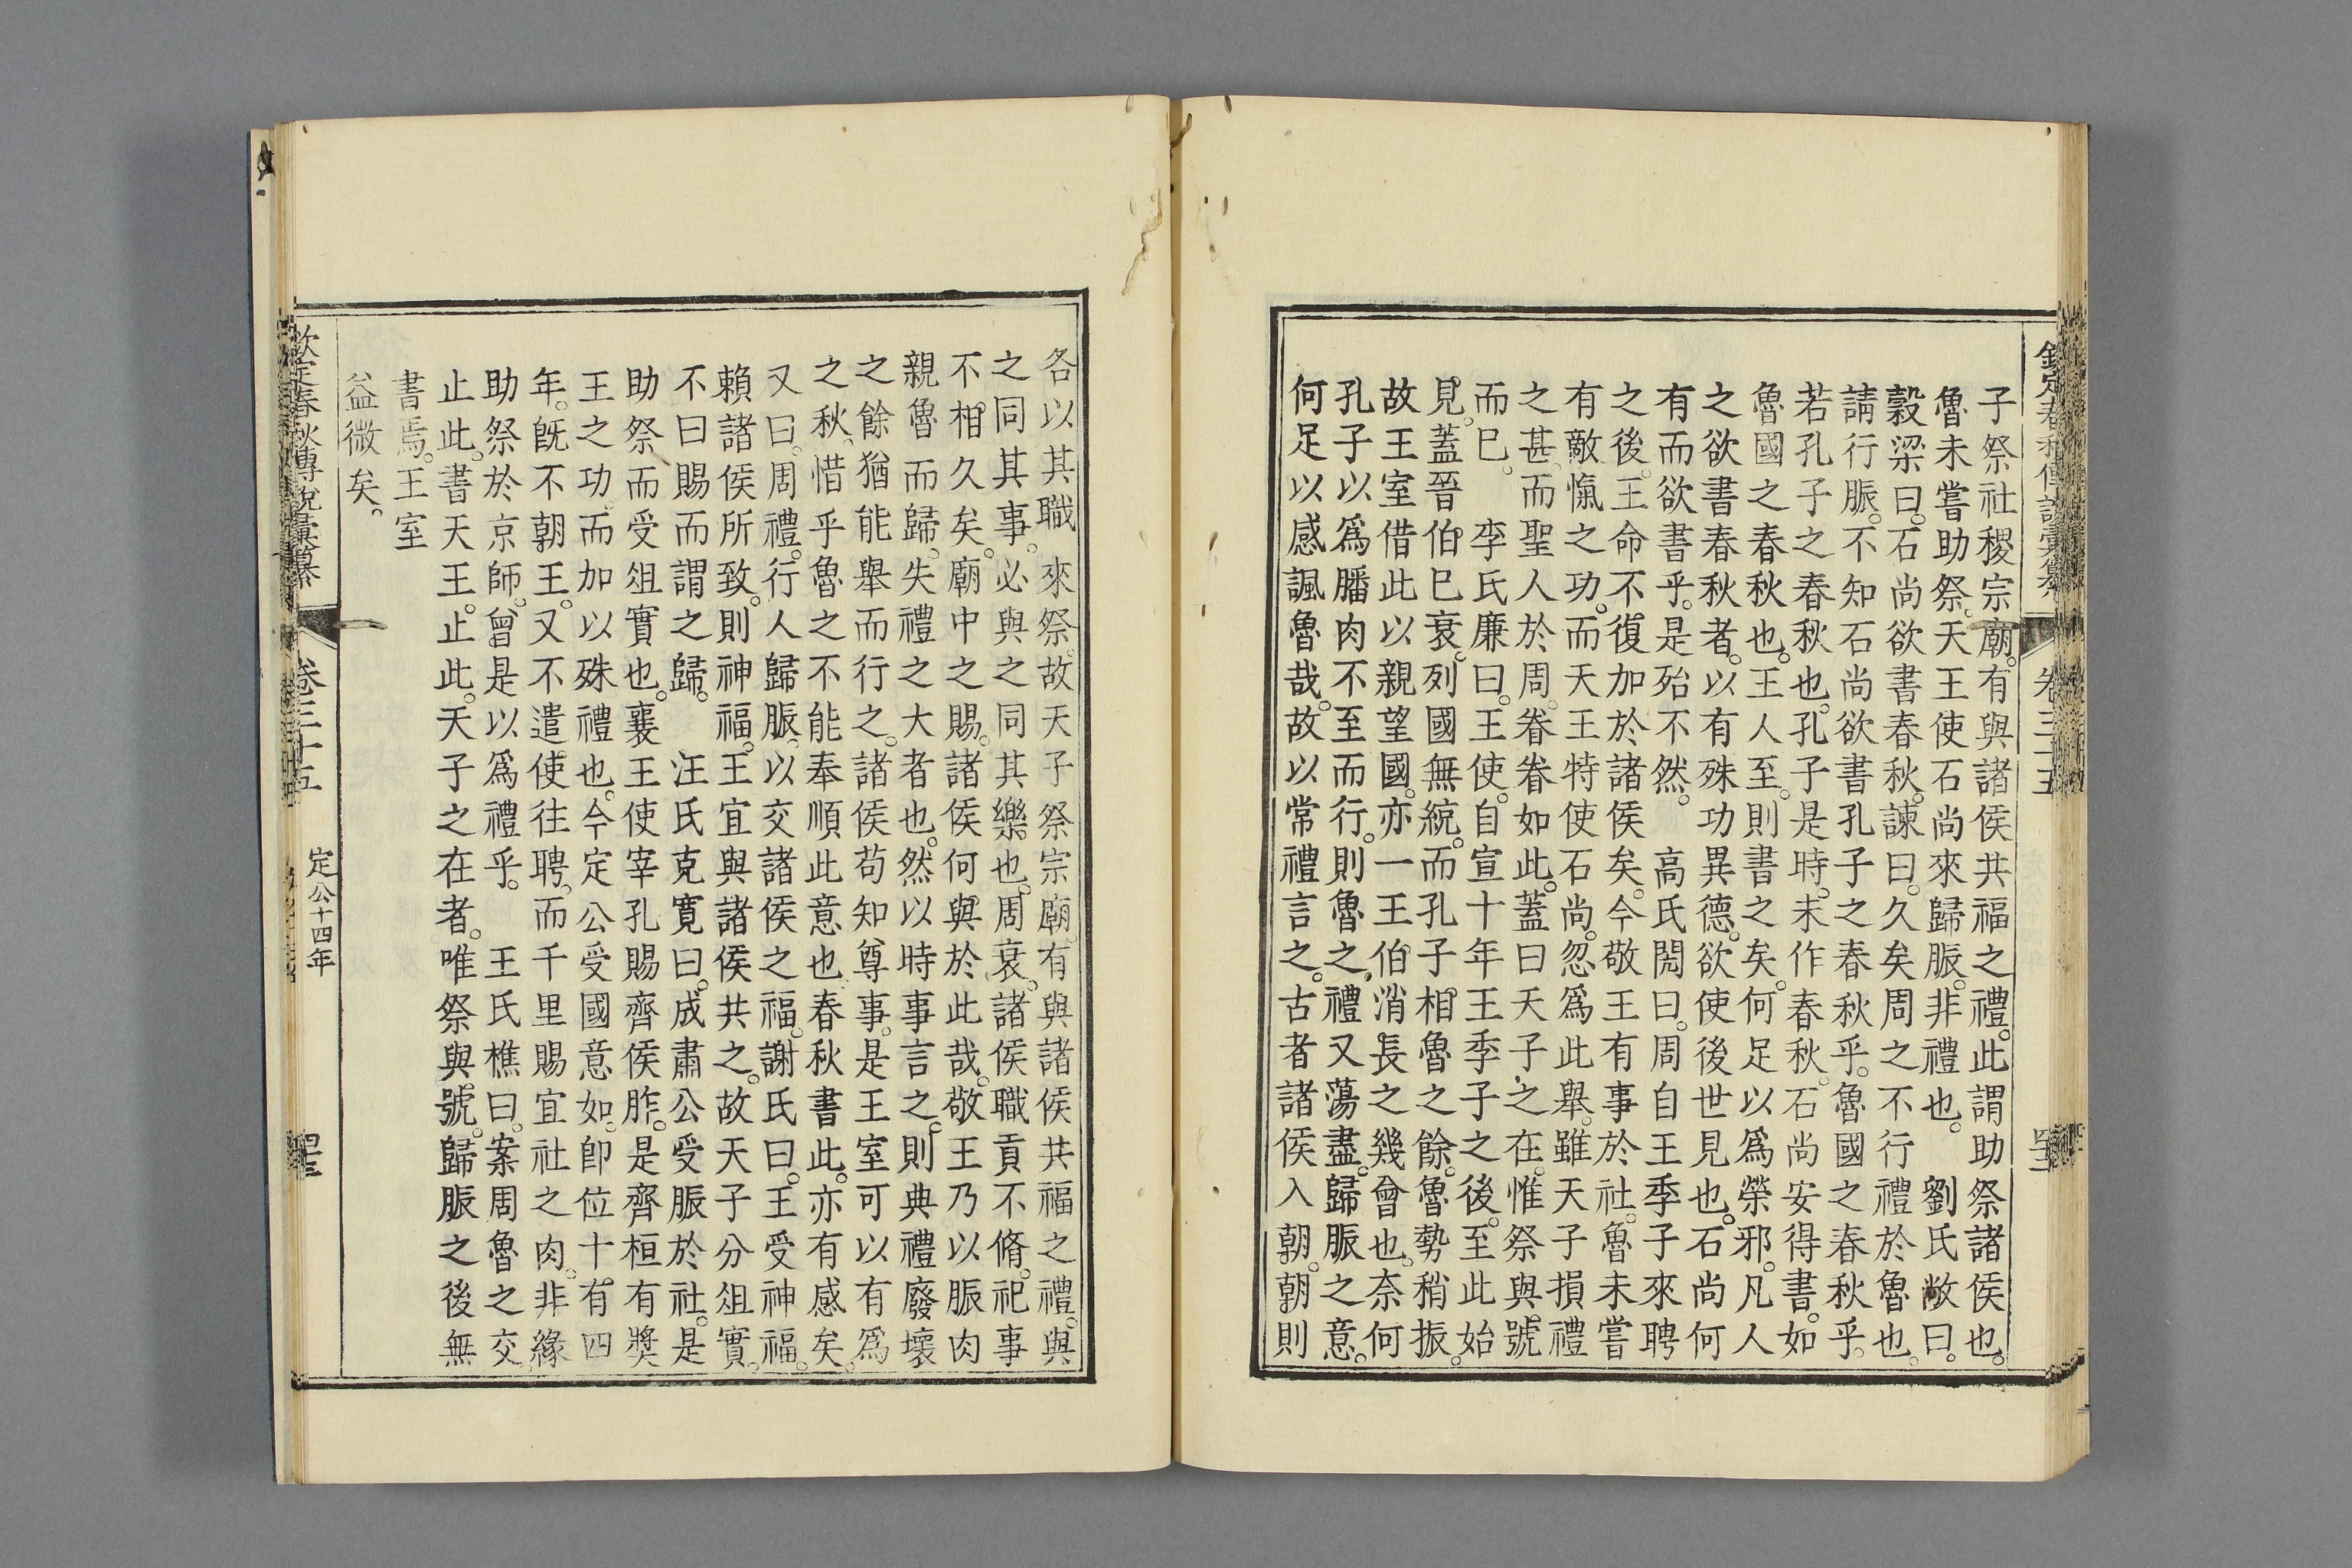 欽定春秋傳說彙纂 卷三十五
子祭社稷宗廟。有與諸侯共福之禮。此謂助祭諸侯也。
魯未嘗助祭。天王使石尚來歸脤。非禮也。 劉氏敞曰。
穀梁曰。石尚欲書春秋。諫曰。久矣周之不行禮於魯也。
請行脤。不知石尚欲書孔子之春秋乎。魯國之春秋乎。
若孔子之春秋也。孔子是時。未作春秋。石尚安得書。如
魯國之春秋也。王人至。則書之矣。何足以爲榮邪。凡人
之欲書春秋者。以有殊功異德。欲使後世見也。石尚何
有而欲書乎。是殆不然。 高氏閌曰。周自王季子來聘
之後。王命不復加於諸侯矣。今敬王有事於社。魯未嘗
有敵愾之功。而天王特使石尚。忽爲此舉。雖天子損禮
之甚。而聖人於周。眷眷如此。蓋曰天子之在。惟祭與號
而已。 李氏廉曰。王使。自宣十年王季子之後。至此始
見。蓋晉伯已衰。列國無統。而孔子相魯之餘。魯勢稍振。
故王室借此以親望國。亦一王伯消長之幾會也。奈何
孔子以爲膰肉不至而行。則魯之禮又蕩盡。歸脤之意。
何足以感諷魯哉。故以常禮言之。古者諸侯入朝。朝則
各以其職來祭。故天子祭宗廟。有與諸侯共福之禮。與
之同其事。必與之同其樂也。周衰。諸侯職貢不脩。祀事
不相久矣。廟中之賜。諸侯何與於此哉。敬王乃以脤肉
親魯而歸。失禮之大者也。然以時事言之。則典禮廢壞
之餘猶能舉而行之。諸侯苟知尊事。是王室可以有爲
之秋。惜乎魯之不能奉順此意也。春秋書此。亦有感矣。
又曰。周禮。行人歸脤。以交諸侯之福。謝氏曰。王受神福。
賴諸侯所致。則神福。王宜與諸侯共之。故天子分俎實。
不曰賜而謂之歸。 汪氏克寬曰。成肅公受脤於社。是
助祭而受俎實也。襄王使宰孔賜齊侯胙。是齊桓有獎
王之功。而加以殊禮也。今定公受國意如。卽位十有四
年。旣不朝王。又不遣使往聘。而千里賜宜社之肉。非緣
助祭於京師。曾是以爲禮乎。 王氏樵曰。案周魯之交。
止此。書天王。止此。天子之在者。唯祭與號。歸脤之後無
書焉。王室
益微矣。
欽定春秋傳說彙纂 卷三十五 定公十四年